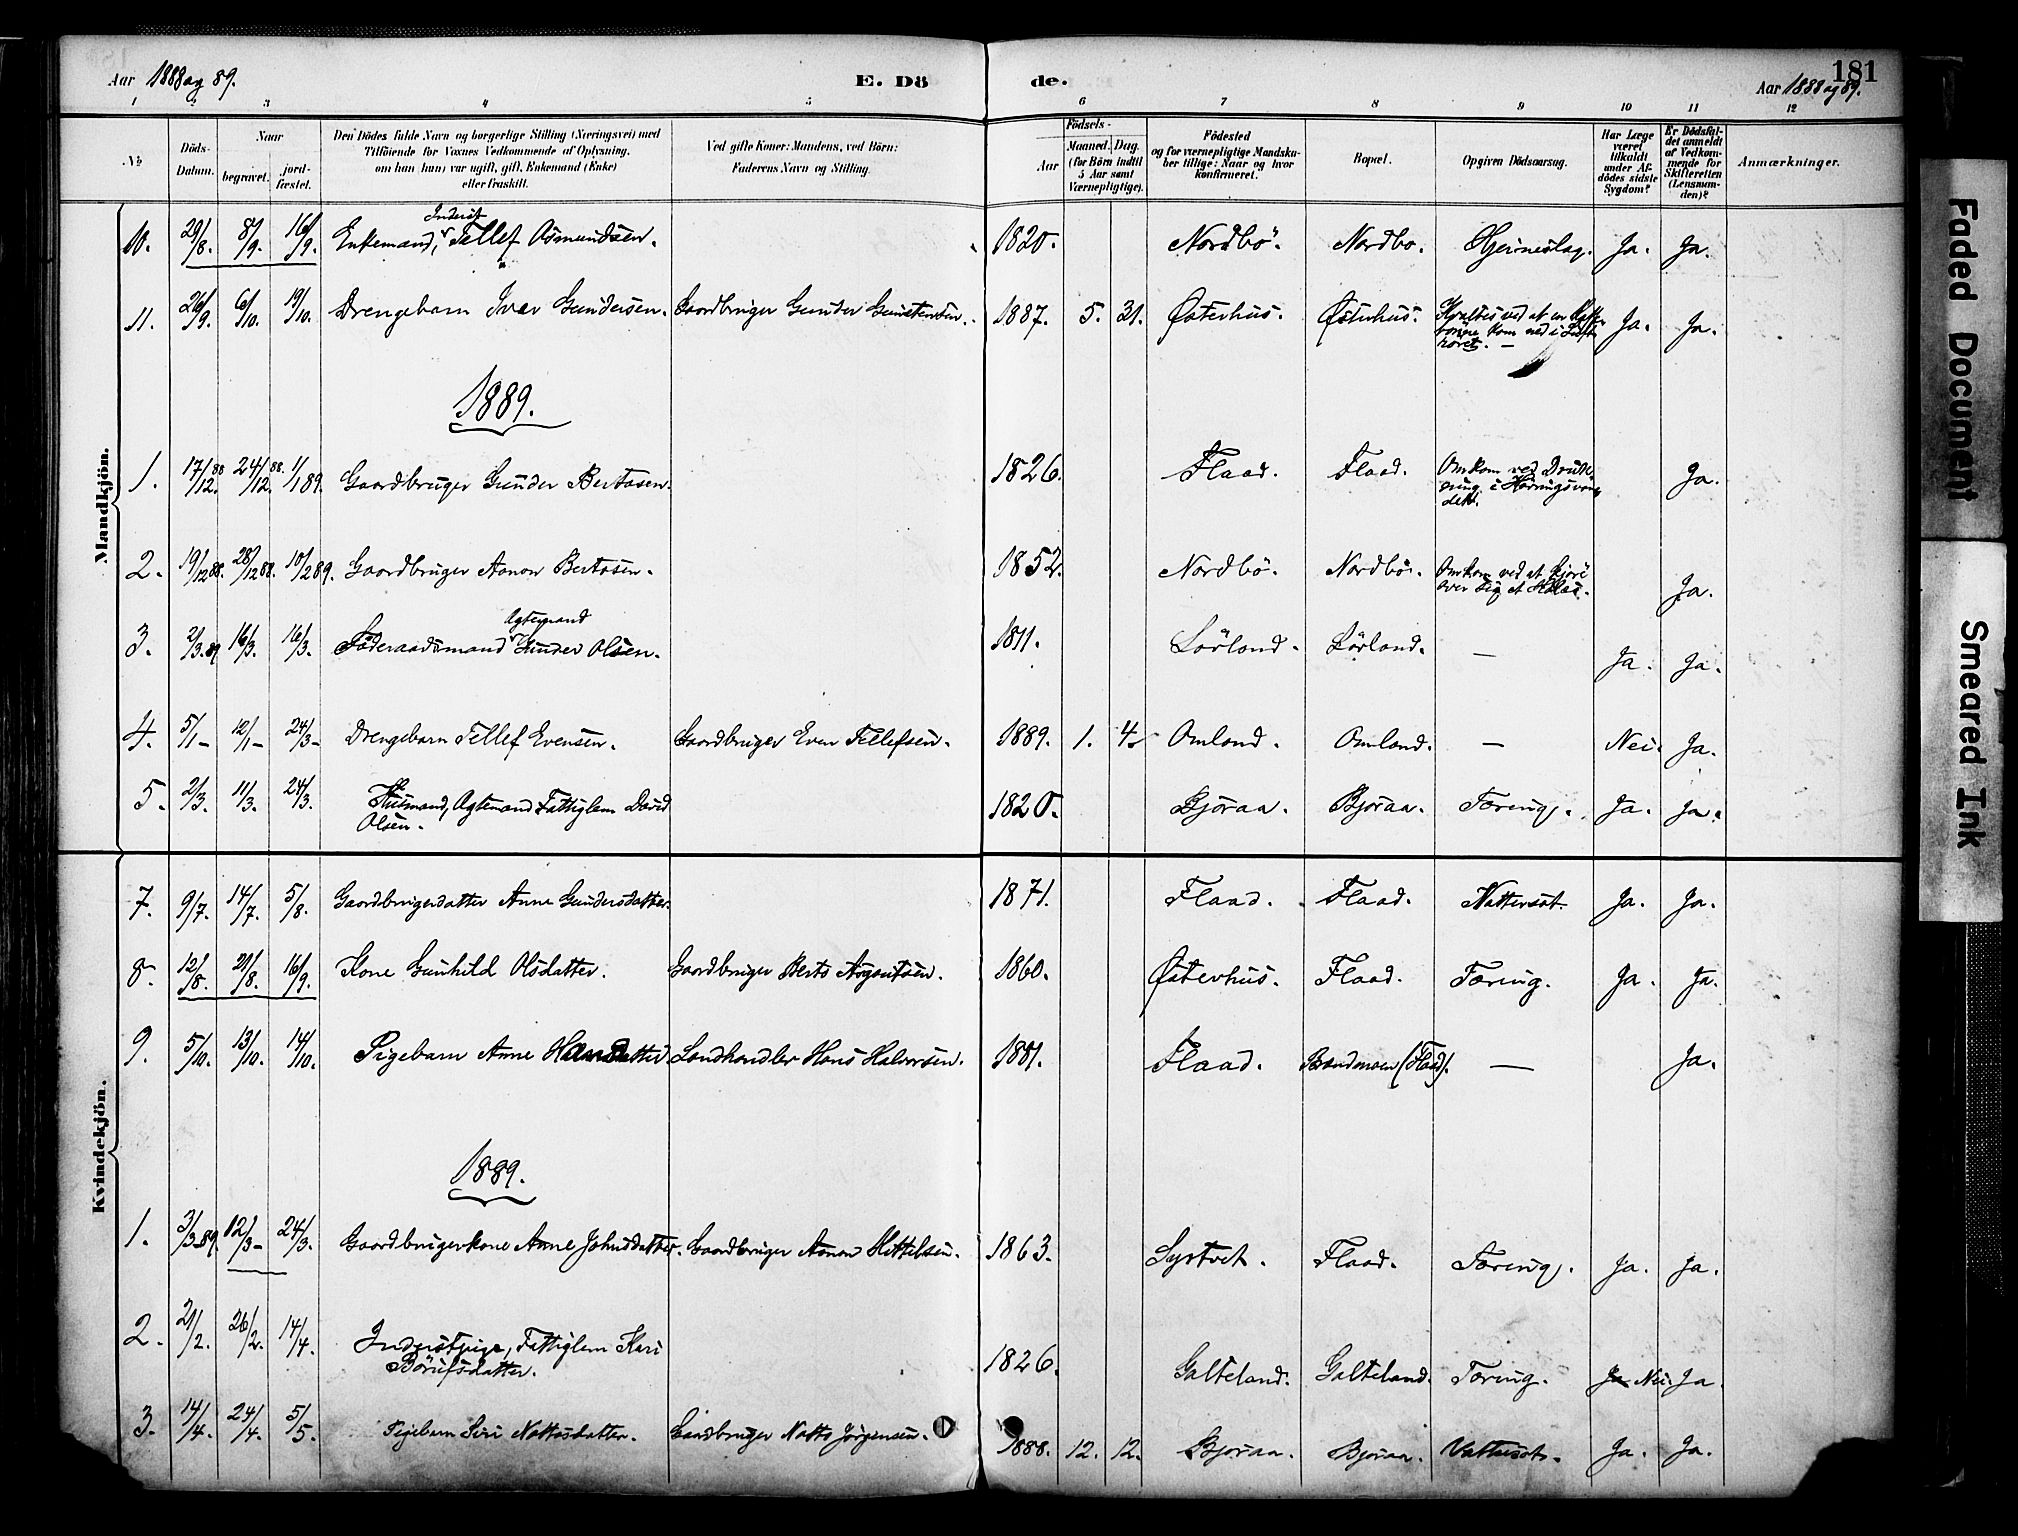 Aar 1888 og 89.
E. Dö
de.
181
Aar 1888 og 89.
1 2 3 4 5 6 7 8 9 10 11 12
No
Döds-Datum.
Naar
begravet.
jord-fæstet.
Den Dödes fulde Navn og borgerlige Stilling (Næringsvei) med
Tilföiende for Voxnes Vedkommende af Oplysning,
om han (hun) var ugift, gift, Enkemand (Enke)
eller fraskilt.
Ved gifte Koner: Mandens, ved Börn:
Faderens Navn og Stilling.
Födsels-
Aar
Maaned.
Dag.
(for Börn indtil
5 Aar samt
Værnepligtige).
Födested
og for værnepligtige Mandska-
ber tillige: Naar og hvor
konfirmeret.
Bopæl.
Opgiven Dödsaarsag.
Har Læge
været
tilkaldt
under Af-
dödes sidste
Sygdom?
Er Dödsfal-
det anmeldt
af Vedkom-
mende for
Skifteretten
(Lensman-
den)?
Anmærkninger.
Mandkjön.
10. 29/8. 8/9. 16/9. Enkemand, Inderst Tellef Osmundsen. 1820. Nordbö. Nordbo. Hjerneslag. Ja. Ja.
11. 26/9. 6/10. 19/10. Drengebarn Ivar Gundersen. Gaardbruger Gunder Gunstensen. 1887. 5. 31. Østerhus. Østerhus. Kvaltes ved at en
kom ned i Luft-
röret. — Ja. Ja.
1889.
1. 17/12 88. 24/12 88. 1/1 89. Gaardbruger Gunder Bertosen. 1826. Flaad. Flaad. Omkom ved Drukk-
ning i
Ja.
2. 19/12 88. 28/12 88. 10/2 89. Gaardbruger Aanon Bertosen. 1852. Nordbö. Nordbö. Omkom ved at kjöre
over sig et Ja.
3. 2/3 89 16/3. 16/3. Föderaadsmand Agtemand Gunder Olsen. 1811. Lörland. Lörland. — Ja. Ja.
4. 5/1 - 12/1 - 24/3 - Drengebarn Tellef Evensen. Gaardbruger Even Tellefsen. 1889. 1. 4. Omland. Omland. — Nei. Ja.
5. 2/3. 11/3. 24/3. Husmand, Agtemand Fattiglem David
Olsen. 1820. Björaa. Björaa. Tæring. Ja. Ja.
Kvindekjön.
7. 9/7. 14/7. 5/8. Gaardbrugerdatter Anne Gundersdatter. 1871. Flaad. Flaad. Nattersot. Ja. Ja.
8. 12/8. 21/8. 16/9. Kone Gunhild Olsdatter. Gaardbruger Berto Asgautsen. 1860. Østerhus. Flaad. Tæring. Ja. Ja.
9. 5/10. 13/10. 14/10. Pigebarn Anne Hansdatter. Landhandler Hans Halvorsen. 1881. Flaad. Sandmoen (Flaad). — Ja.
1889.
1. 3/3 89. 12/3 - 24/3. Gaardbrugerkone Anne Johnsdatter. Gaardbruger Aanon Kittelsen. 1863. Systveit. Flaad. Tæring. Ja. Ja.
2. 21/2. 26/2. 14/4. Inderstpige, Fattiglem Kari
Börufsdatter. 1826. Galteland. Galteland. Tæring. Ja Nei. Ja
3. 14/4. 24/4. 5/5. Pigebarn Siri Nottosdatter. Gaardbruger Notto Jörgensen. 1888. 12. 12. Björaa. Björaa. Vattersot. Ja. Ja.
Faded Document
Smeared Ink